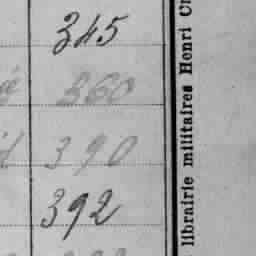 345
360
390
392
librairie militaires Henri Ch